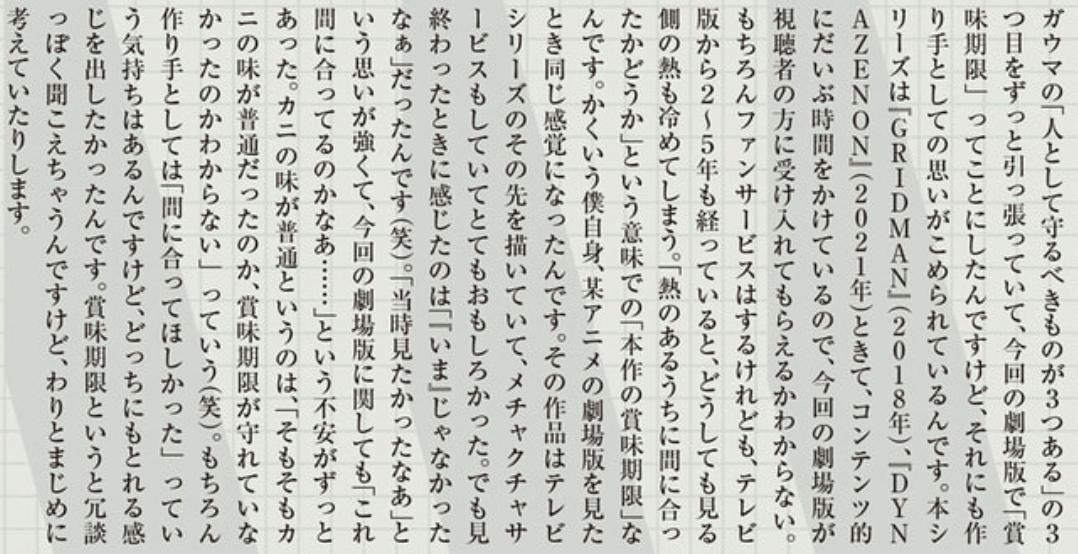 ガウマの「人として守るべきものが3つある」の3
つ目をずっと引っ張っていて、今回の劇場版で「賞
味期限」ってことにしたんですけど、それにも作
り手としての思いがこめられているんです。本シ
リーズは『GRIDMAN』(2018年)、『DYN
AZENON』(2021年)ときて、コンテンツ的
にだいぶ時間をかけているので、今回の劇場版が
視聴者の方に受け入れてもらえるかわからない。
もちろんファンサービスはするけれども、テレビ
版から2〜5年も経っていると、どうしても見る
側の熱も冷めてしまう。「熱のあるうちに間に合っ
たかどうか」という意味での「本作の賞味期限」な
んです。かくいう僕自身、某アニメの劇場版を見た
とき同じ感覚になったんです。その作品はテレビ
シリーズのその先を描いていて、メチャクチャサ
ービスもしていてとてもおもしろかった。でも見
終わったときに感じたのは「『いま』じゃなかった
なぁ」だったんです(笑)。「当時見たかったなあ」と
いう思いが強くて、今回の劇場版に関しても「これ
間に合ってるのかなあ……」という不安がずっと
あった。カニの味が普通というのは、「そもそもカ
ニの味が普通だったのか、賞味期限が守れていな
かったのかわからない」っていう(笑)。もちろん
作り手としては「間に合ってほしかった」ってい
う気持ちはあるんですけど、どっちにもとれる感
じを出したかったんです。賞味期限というと冗談
っぽく聞こえちゃうんですけど、わりとまじめに
考えていたりします。